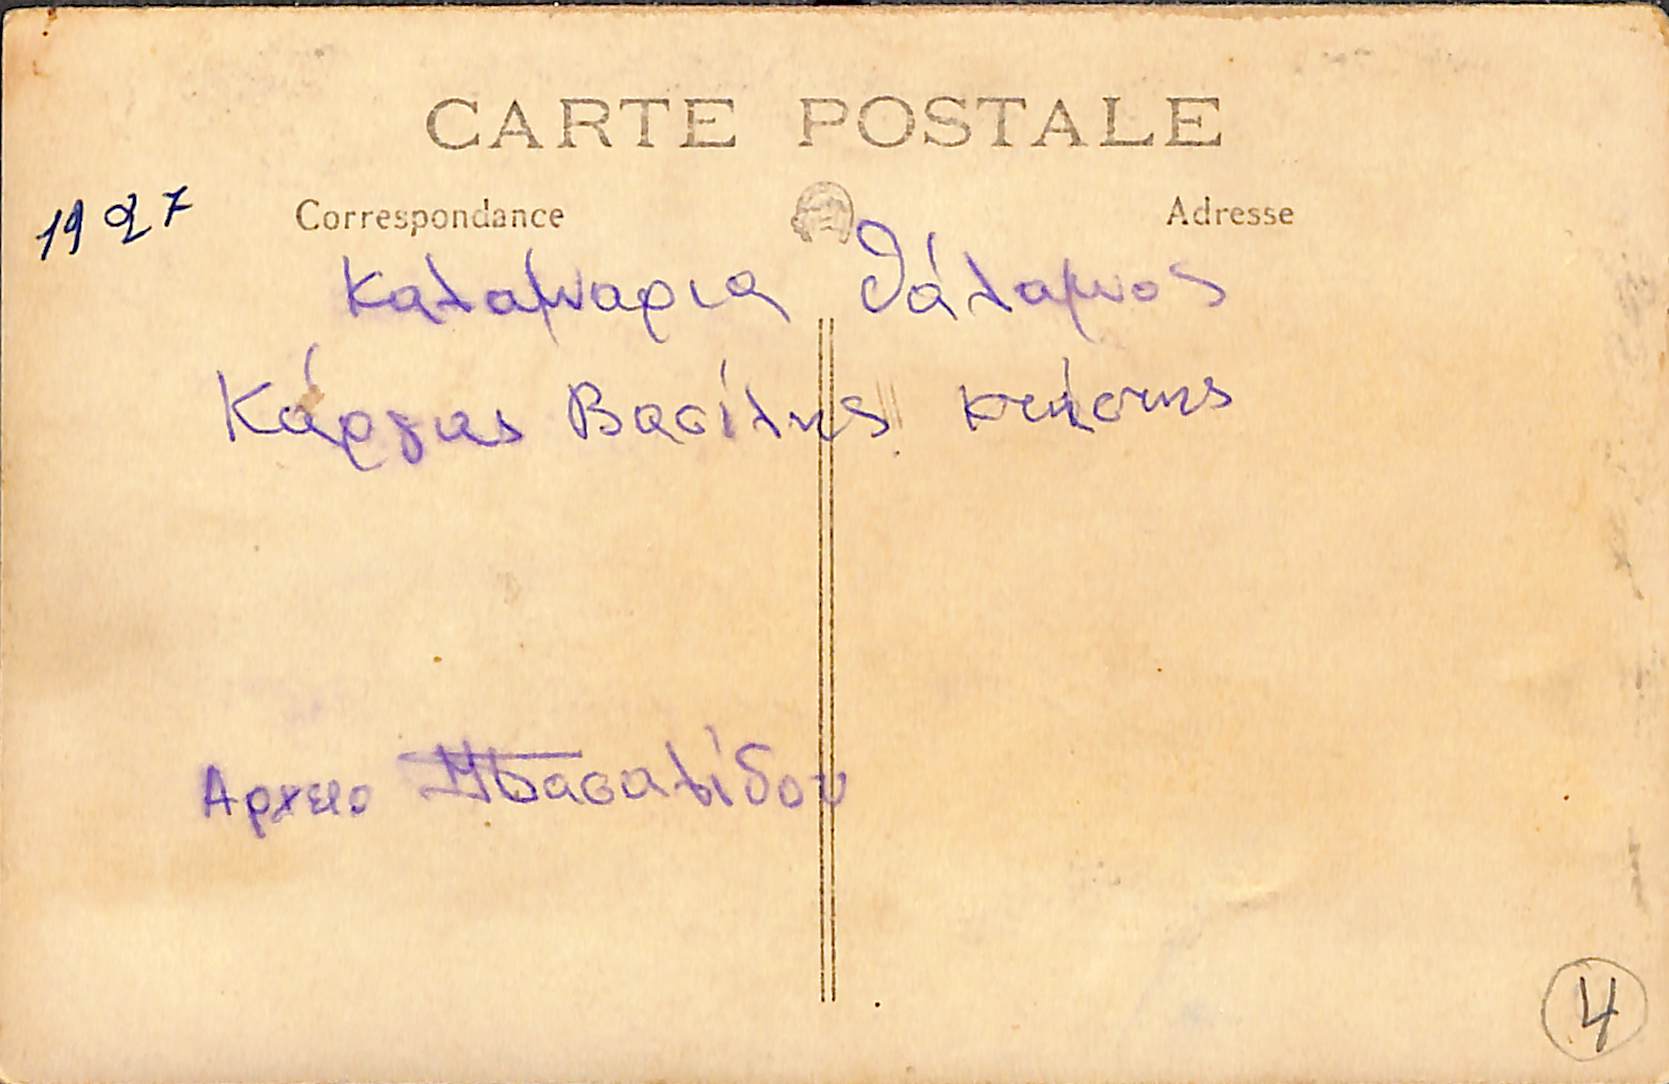 CARTE POSTALE
1927 Correspondance Adresse
Καλαμαρια θάλαμος
Κάργας Βασίλης κτίστης
Αρχειο
4